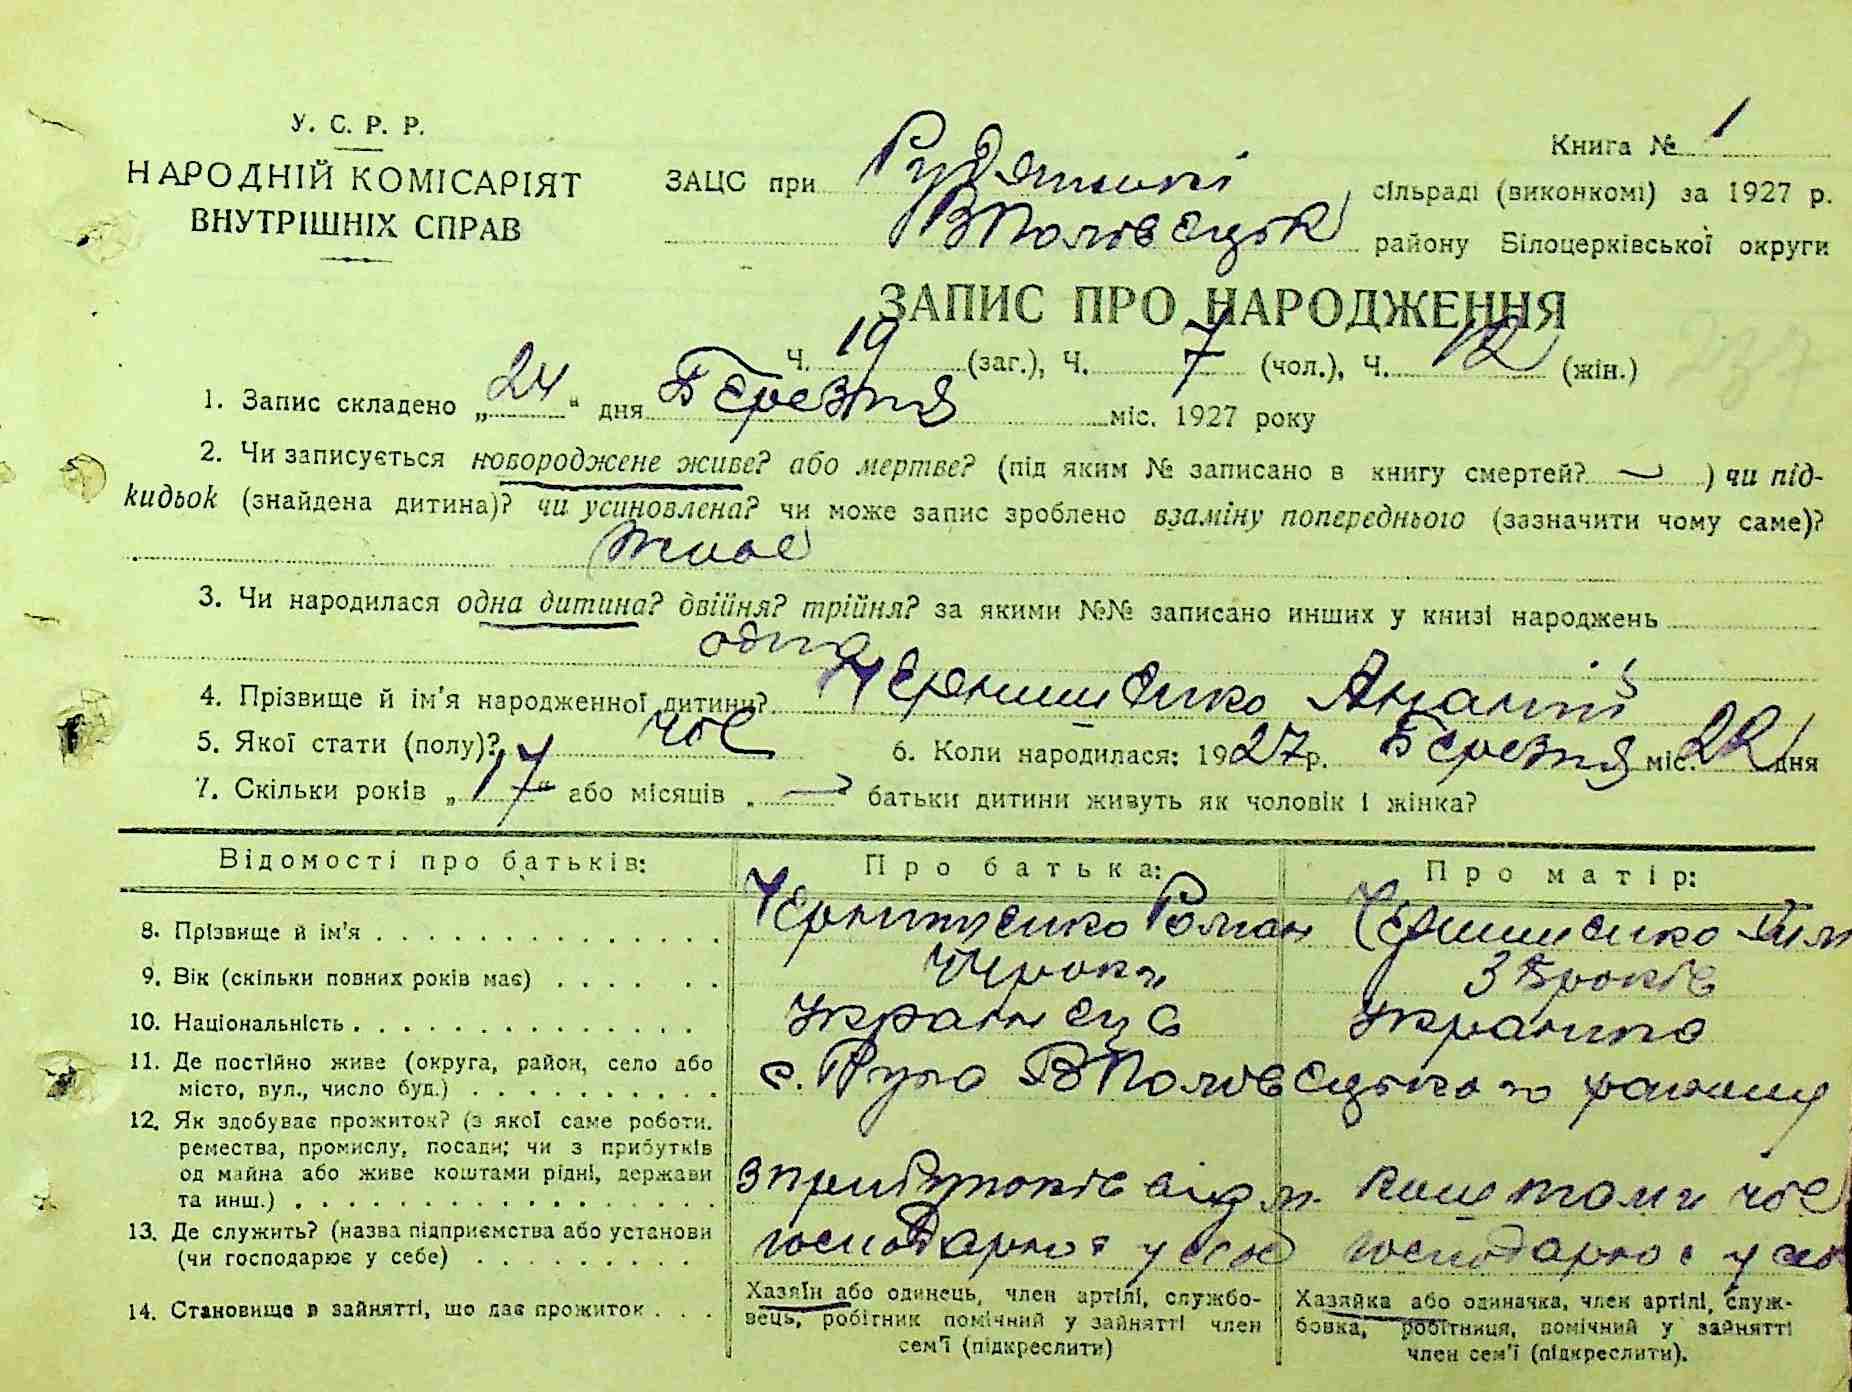 У. С. Р. Р.
НАРОДНІЙ КОМІСАРІЯТ
ВНУТРІШНІХ СПРАВ
Книга № 1
ЗАЦС при Рудянській сільраді (виконкомі) за 1927 р.
ВПоловецьк району Білоцерківської округи
ЗАПИС ПРО НАРОДЖЕННЯ
Ч. 19 (заг.), Ч. 7 (чол.), Ч. 12 (жін.)
1. Запис складено „24“ дня Березня міс. 1927 року
2. Чи записується новороджене живе? або мертве? (під яким № записано в книгу смертей? — ) чи під-
кидьок (знайдена дитина)? чи усиновлена? чи може запис зроблено взаміну попереднього (зазначити чому саме)?
живе
3. Чи народилася одна дитина? двійня? трійня? за якими №№ записано инших у книзі народжень
одна
4. Прізвище й ім'я народженної дитини? Чернишенко Ананій
5. Якої стати (полу)? чол 6. Коли народилася: 1927р. Березня міс. 22 дня
7. Скільки років „17“ або місяців „ — “ батьки дитини живуть як чоловік і жінка?
Відомості про батьків: Про батька: Про матір:
8. Прізвище й ім'я Чернишенко Роман Чернишенко
9. Вік (скільки повних років має) 44 роки 35 років
10. Національність Українець Українка
11. Де постійно живе (округа, район, село або
місто, вул., число буд.) с. Руда ВПоловецького району
12. Як здобуває прожиток? (з якої саме роботи.
ремества, промислу, посади; чи з прибутків
од майна або живе коштами рідні, держави
та инш.) З прибутків від м. Коштами чол
13. Де служить? (назва підприємства або установи
(чи господарює у себе) господарює у себе господарює у себе
14. Становище в зайнятті, що дає прожиток
Хазяїн або одинець, член артілі, службо-
вець, робітник помічний у зайнятті член
сем'ї (підкреслити)
Хазяйка або одиначка, член артілі, служ-
бовка, робітниця, помічний у зайнятті
член сем'ї (підкреслити).